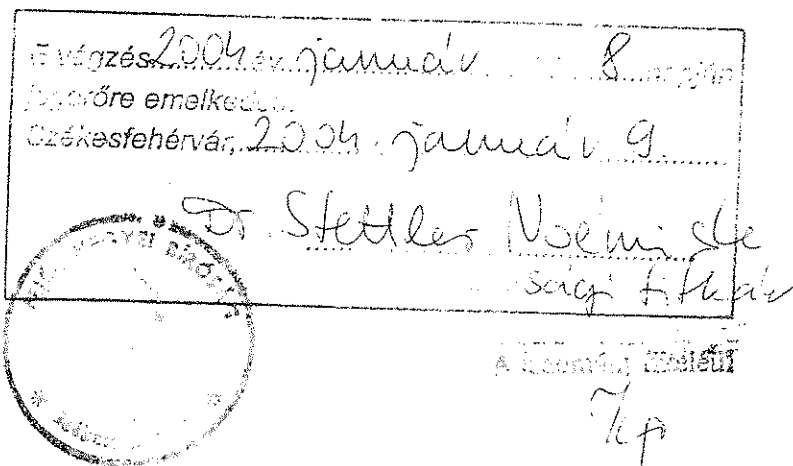 E végzés 2004. év január 8. napján
jogerőre emelkedett.
Székesfehérvár, 2004. január 9.
Dr. Stettler Noémi sk
sági titkár
MEGYEI BÍRÓSÁG
A kiadmány hiteléül